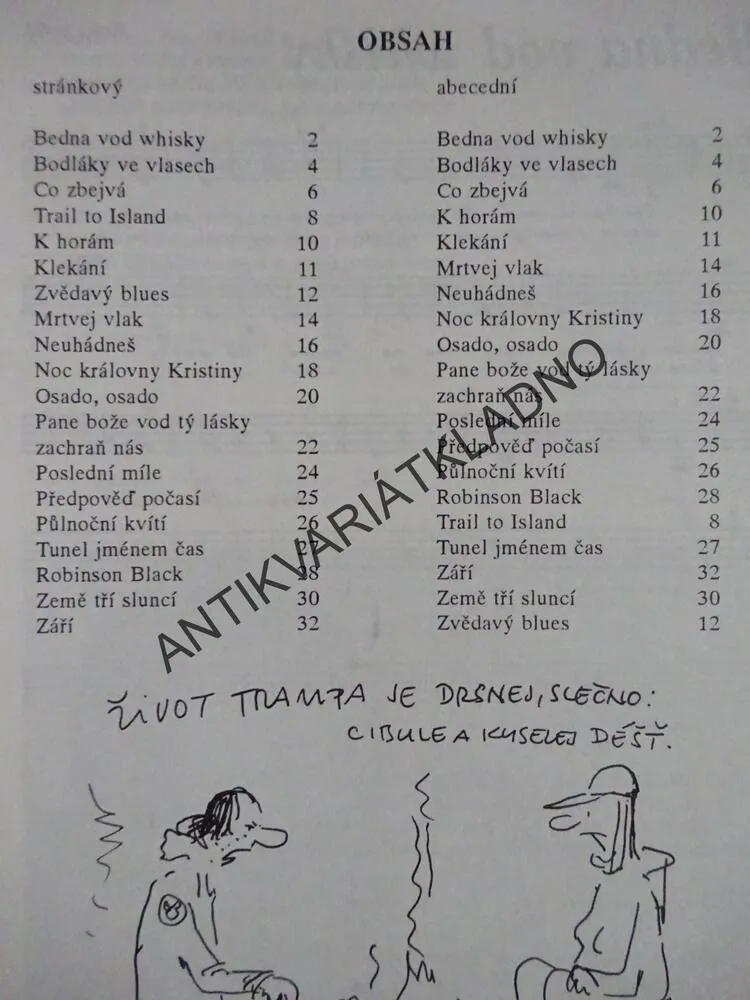 OBSAH
stránkový
Bedna vod whisky 2
Bodláky ve vlasech 4
Co zbejvá 6
Trail to Island 8
K horám 10
Klekání 11
Zvědavý blues 12
Mrtvej vlak 14
Neuhádneš 16
Noc královny Kristiny 18
Osado, osado 20
Pane bože vod tý lásky
zachraň nás 22
Poslední míle 24
Předpověď počasí 25
Půlnoční kvítí 26
Tunel jménem čas 27
Robinson Black 28
Země tří sluncí 30
Září 32
abecední
Bedna vod whisky 2
Bodláky ve vlasech 4
Co zbejvá 6
K horám 10
Klekání 11
Mrtvej vlak 14
Neuhádneš 16
Noc královny Kristiny 18
Osado, osado 20
Pane bože vod tý lásky
zachraň nás 22
Poslední míle 24
Předpověď počasí 25
Půlnoční kvítí 26
Robinson Black 28
Trail to Island 8
Tunel jménem čas 27
Září 32
Země tří sluncí 30
Zvědavý blues 12
ANTIKVARIÁTKLADNO
ŽIVOT TRAMPA JE DRSNEJ, SLEČNO:
CIBULE A KYSELEJ DÉŠŤ.